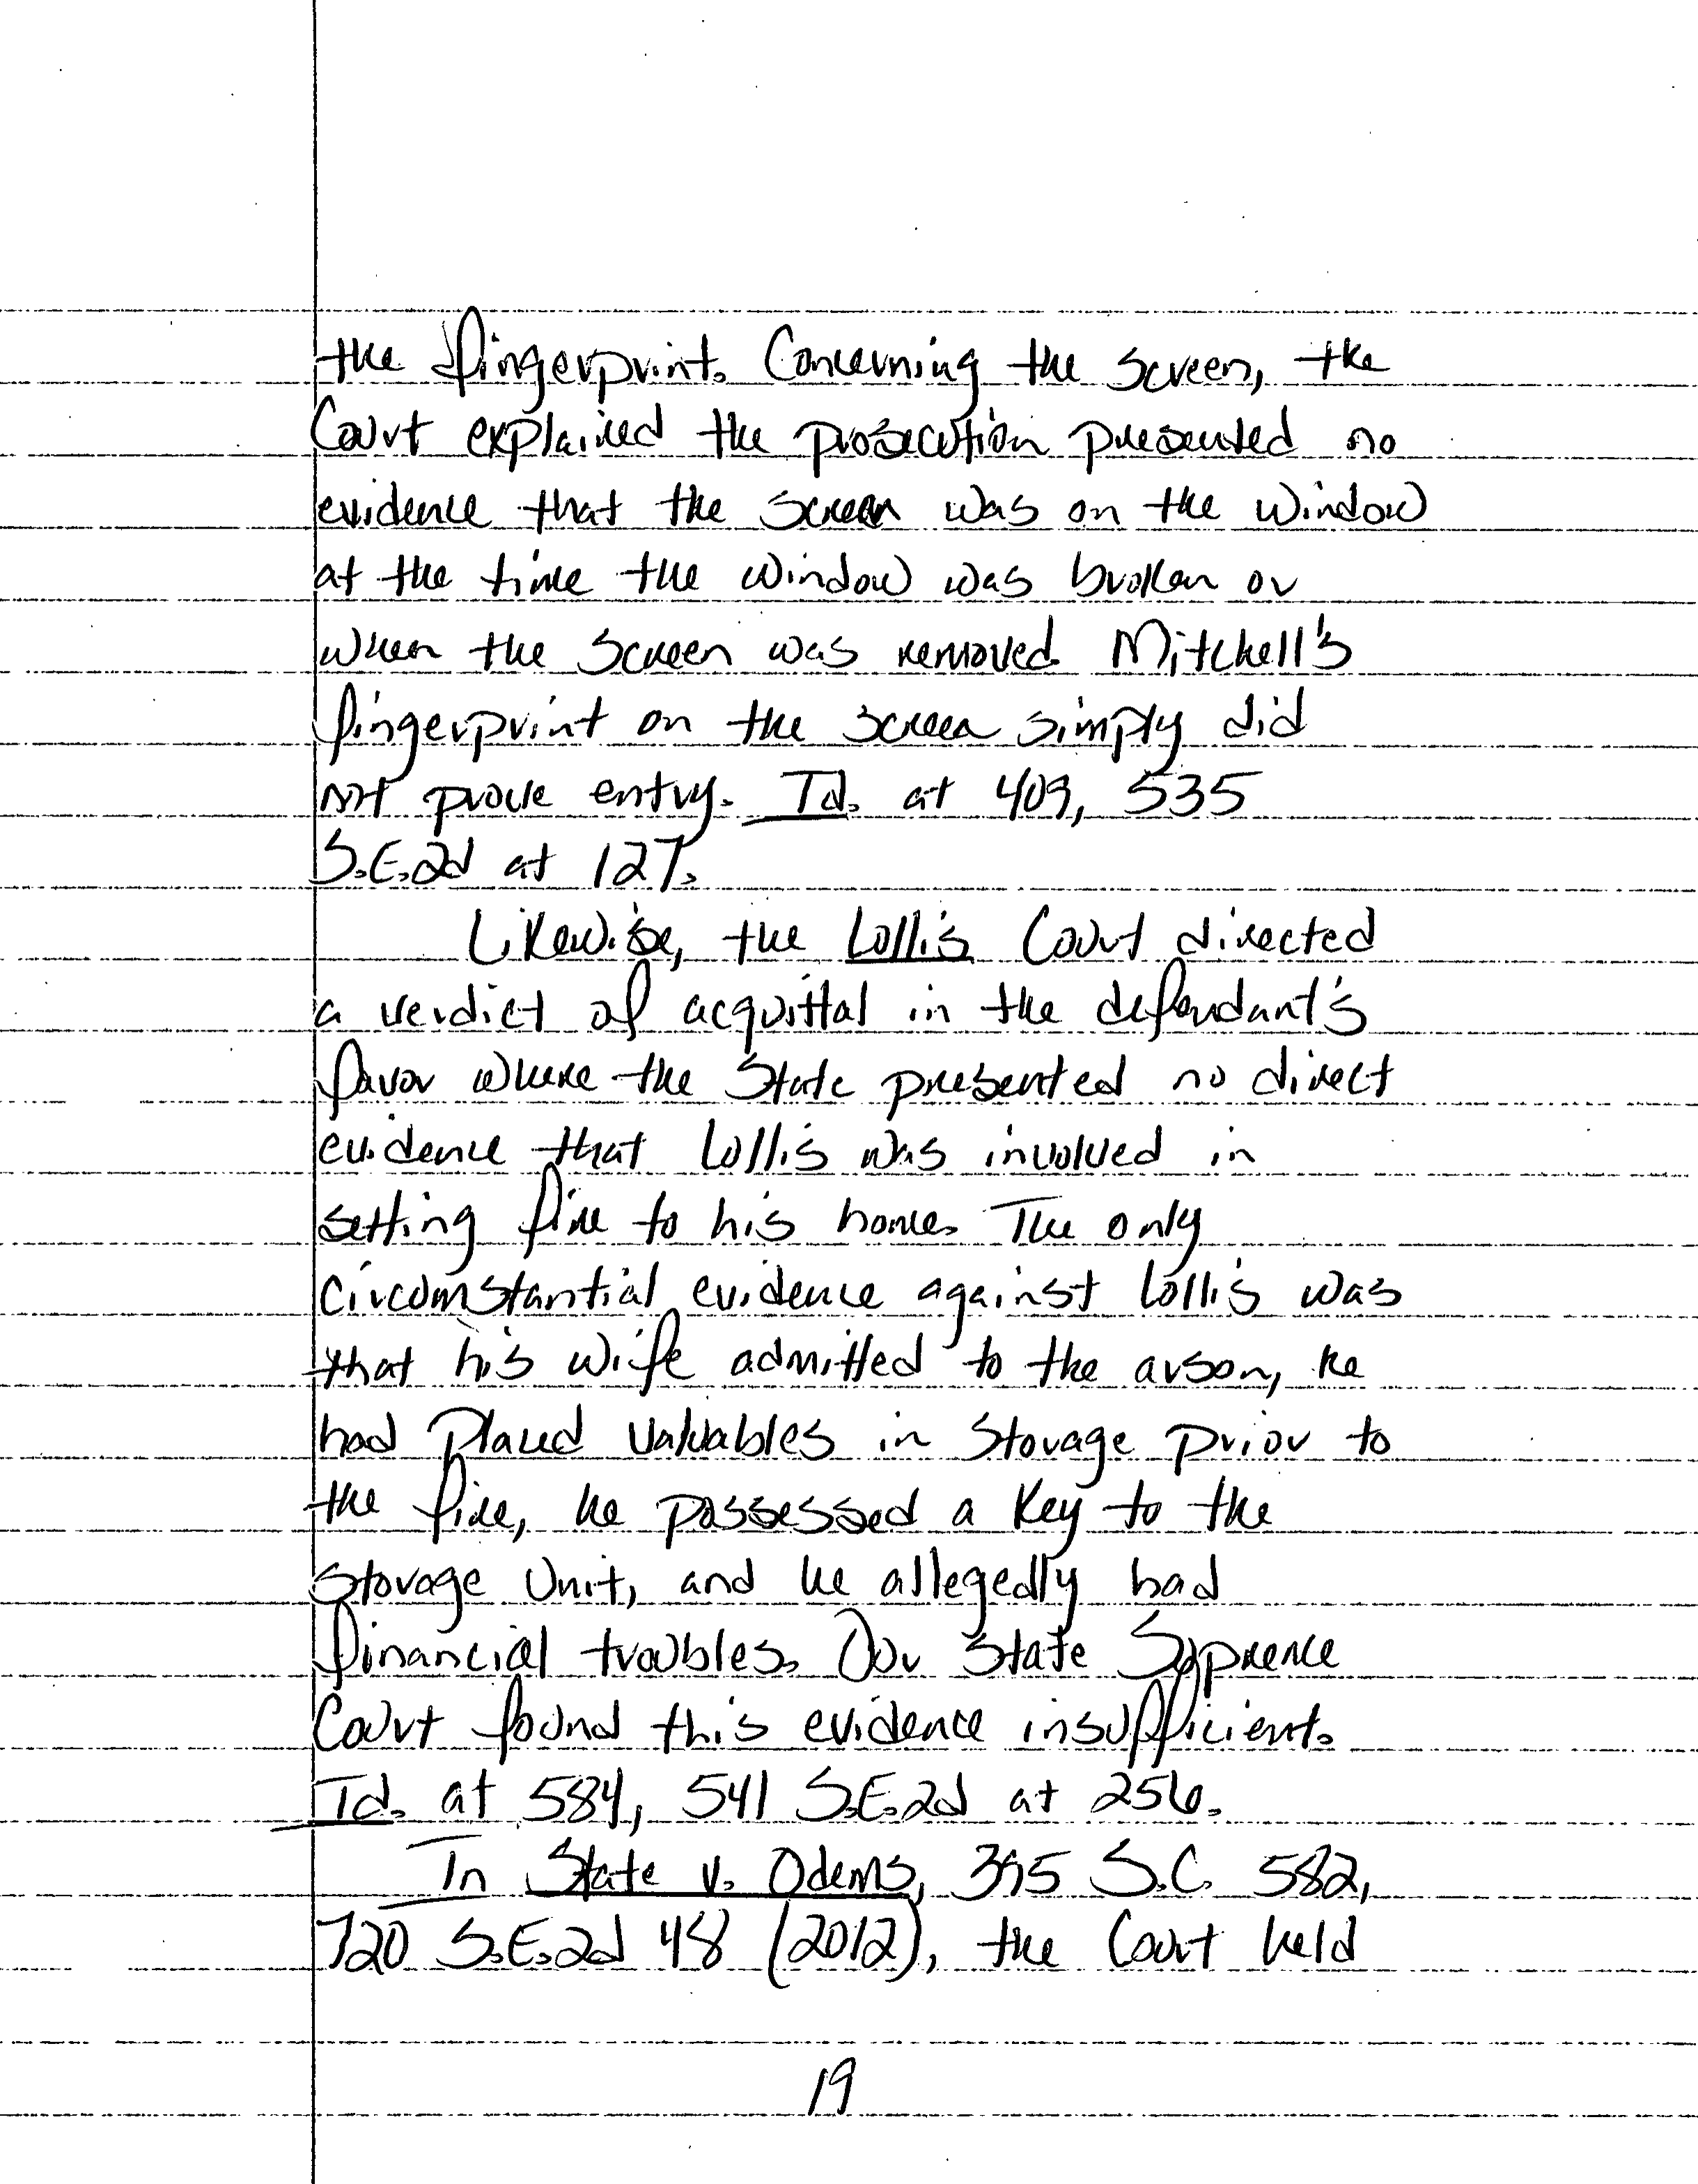 the fingerprint. Concerning the screen, the
Court explained the prosecution presented no
evidence that the screen was on the window
at the time the window was broken or
when the screen was removed. Mitchell's
fingerprint on the screen simply did
not prove entry. Id. at 409, 535
S.E.2d at 127.
Likewise, the Lollis Court directed
a verdict of acquittal in the defendant's
favor where the State presented no direct
evidence that Lollis was involved in
setting fire to his home. The only
circumstantial evidence against Lollis was
that his wife admitted to the arson, he
had placed valuables in storage prior to
the fire, he possessed a key to the
storage unit, and he allegedly had
financial troubles. Our State Supreme
Court found this evidence insufficient.
Id. at 584, 541 S.E.2d at 256.
In State v. Odems, 395 S.C. 582,
720 S.E.2d 48 (2012), the Court held
19